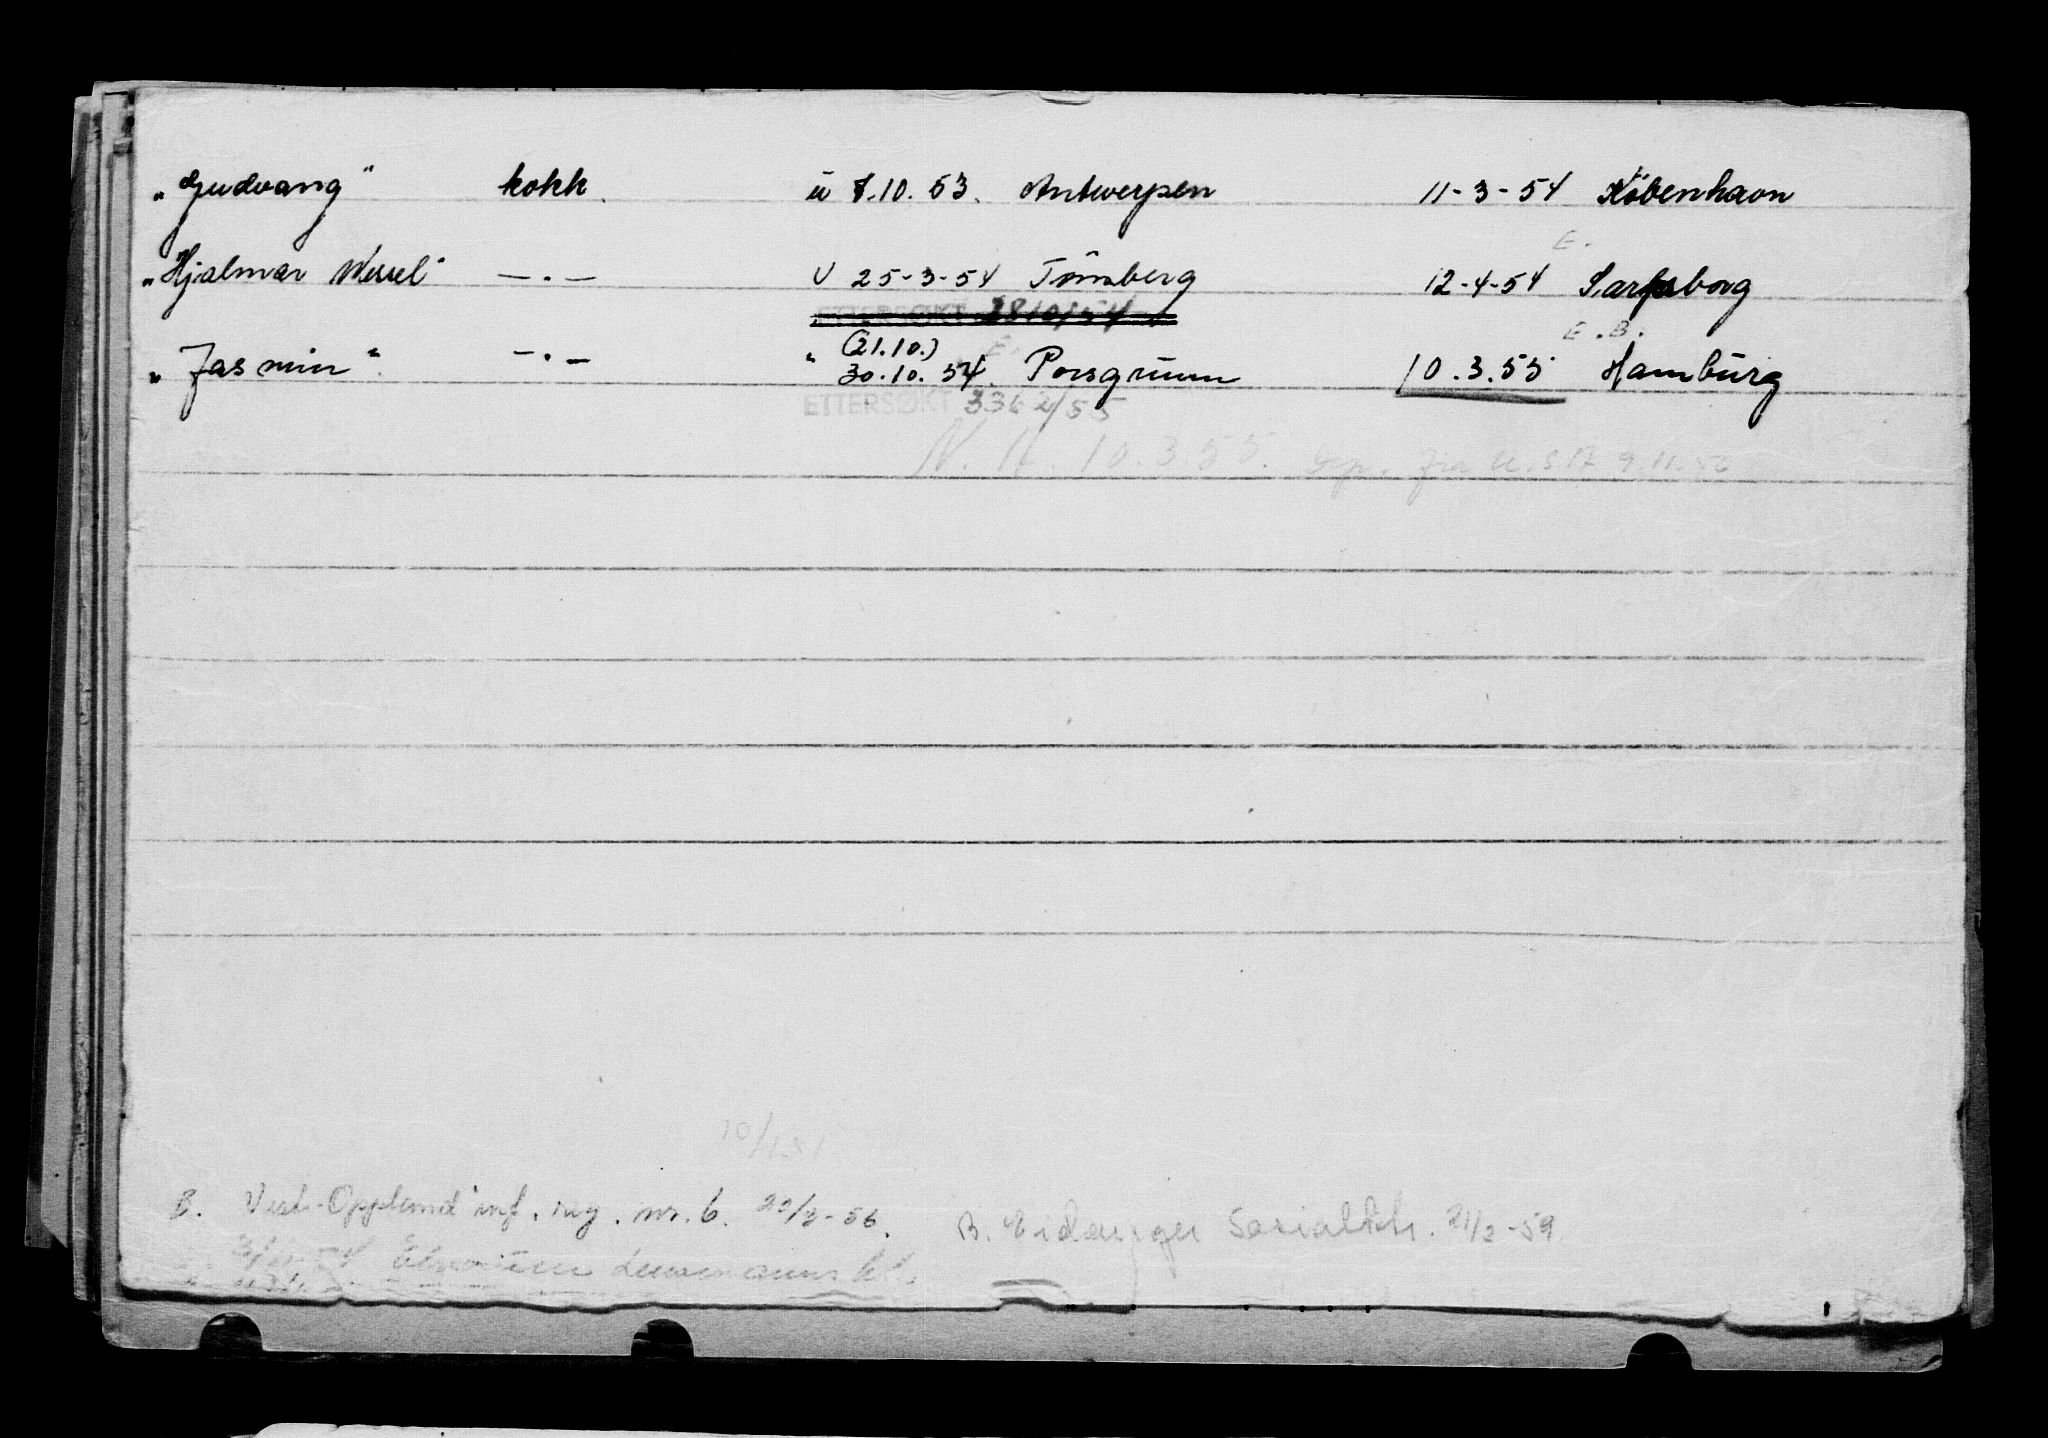 „Gudvang" kokk. u 7.10.53. Antwerpen 11-3-54 København
E.
„Hjalmar Wessel" —.— U 25-3-54 Tønsberg 12-4-54 Sarpsborg
ETTERSØKT
E.B.
„Jasmin" —.— " (21.10.) 30.10.54. Porsgrunn 10.3.55 Hamburg
ETTERSØKT 3362/55
N.A. 10.3.55. fra U.S.A 9.11.56
B. Vest-Oppland inf. reg. nr. 6. 20/3-56. B. Eidanger Sosialktr. 21/2-59
Lensmannsktr.